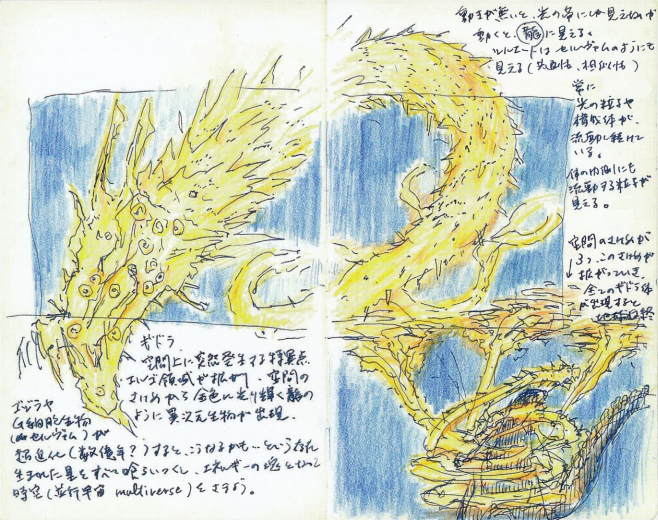 動きが無いと、光の帯にしか見えないが
動くと、龍に見える。
シルエットはセルヴァムのようにも
見える(
常に
光の粒子や
構成体が、
流動し続けて
いる。
体の内側にも
流動する粒子が
見える。
空間のさけめが
3つ、このさけめが
拡がっていき、
全てのギドラ体
が出現すると
地球は終
ギドラ
空間上に突然発生する特異点
エルゴ領域が拡がり、空間の
さけめから金色に光り輝く龍の
ように異次元生物が出現.
ゴジラや
G細胞生物
セルヴァム)が
超進化(数億年?)すると、こうなるかも…という
生まれた星をすべて喰らいつくし、エネルギーの塊と
時空(並行宇宙 multiverse)をさまよう。